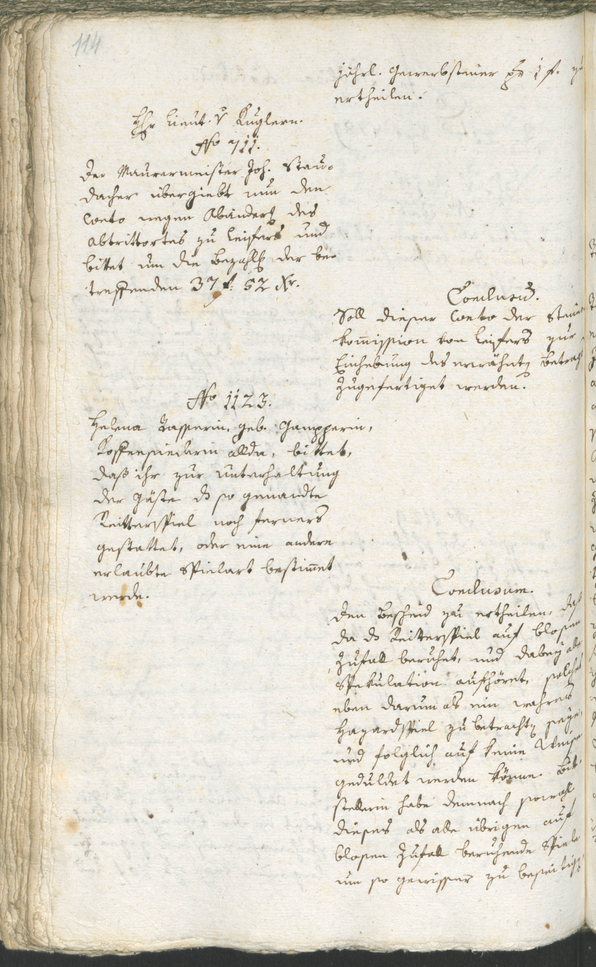 114
jährl. Gewerbsteuer pr 1 f. zu
ertheilen.
Hr Lieut. v Kuglern.
No 711.
Der Maurermeister Joh. Stau-
dacher übergiebt nun den
Conto wegen Abänder des
Abtrittortes zu Leifers und
bittet um die Bezahl der be-
treffenden 37 f. 52 Xr.
Conclusum.
Soll dieser Conto der Steuer
kommission von Leifers zur
Einhebung des erwähnten Betrags
zugefertiget werden.
No 1123.
Helena geb. Gamperin,
Kaffeesiederin allda, bittet,
daß ihr zur Unterhaltung
der Gäste das so genandte
Reitterspiel noch ferners
gestattet, oder eine andere
erlaubte Spielart bestimmet
werde.
Conclusum.
Den Bescheid zu ertheilen, daß
da das Reitterspiel auf blosen
Zufall beruhet, und dabey alle
Spekulation aufhöret, solches
eben darum als ein wahres
Hazardspiel zu betrachten seye
und folglich auf keine
geduldet werden könne. Bitt-
stellerin habe demnach sowohl
dieses als alle übrigen auf
blosen Zufall beruhende Spiele
um so gewisser zu beseitigen